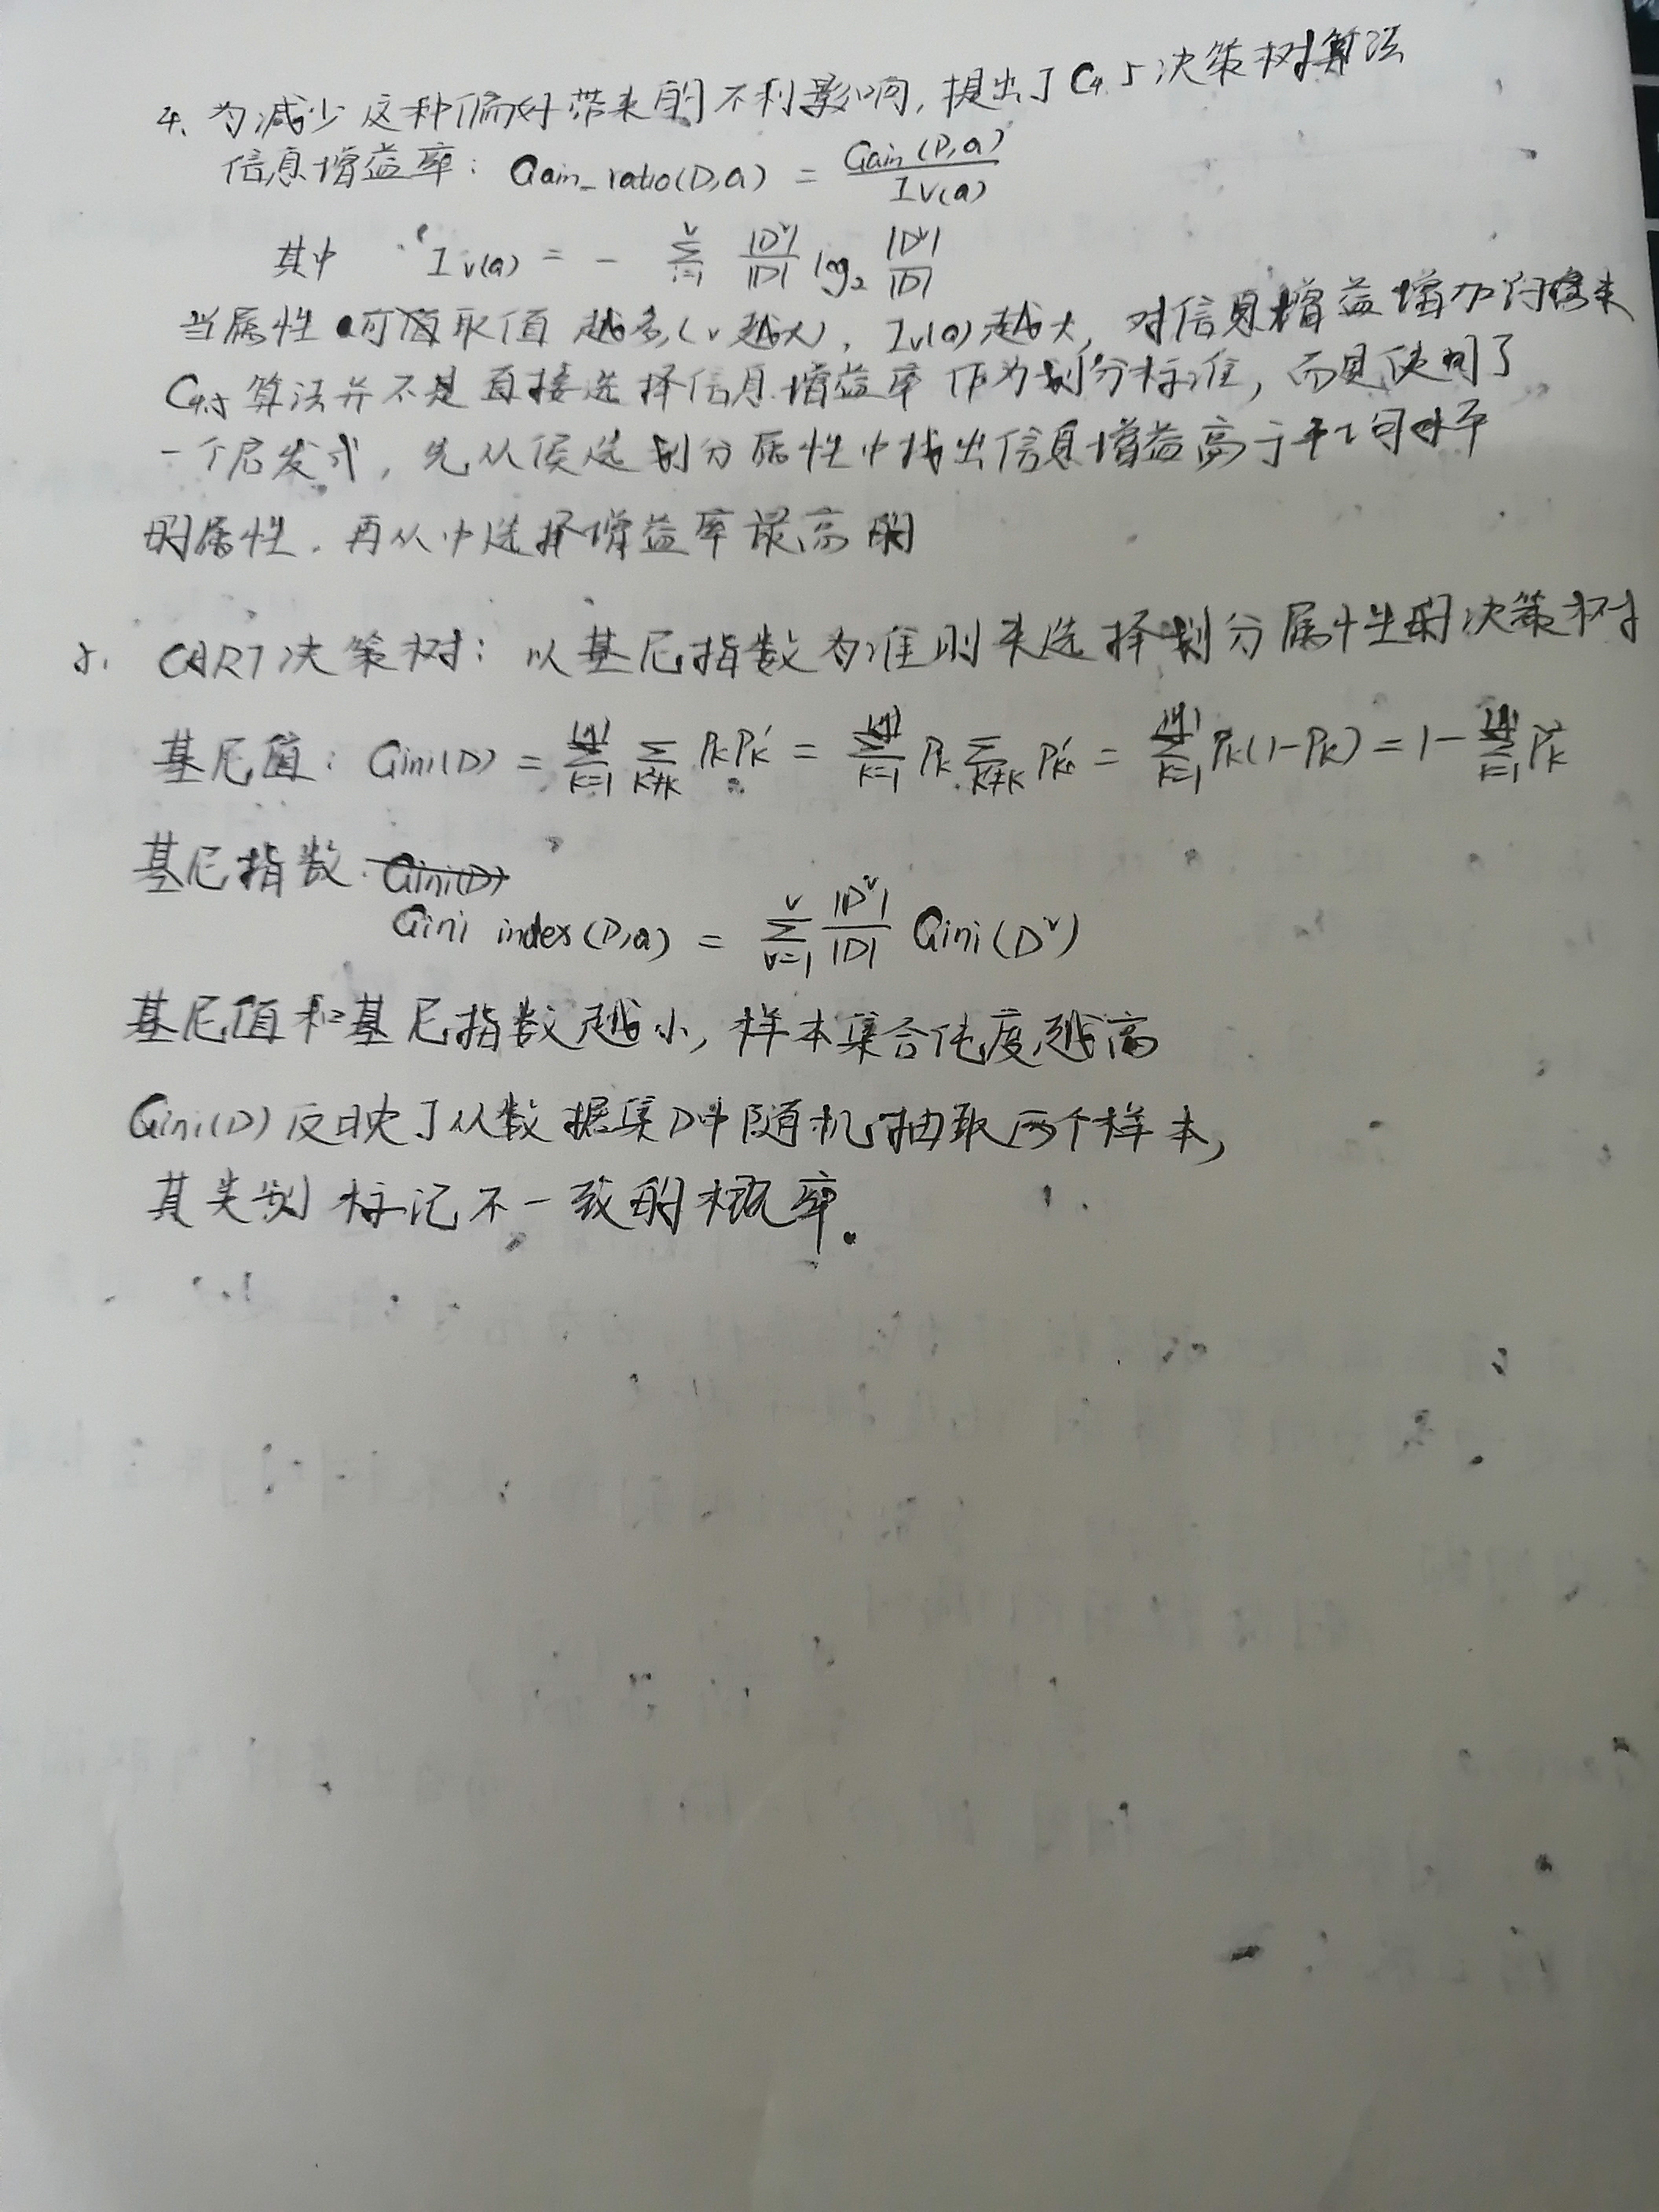 4. 为减少这种偏好带来的不利影响, 提出了C4.5决策树算法
信息增益率: Gain_ratio(D,a) = Gain(D,a) / IV(a)
其中 IV(a) = - Σ_{i=1}^{V} |D^v|/|D| log₂ |D^v|/|D|
当属性a可取值越多(v越大), Iv(a)越大, 对信息增益增加的
C4.5算法并不是直接选择信息增益率作为划分标准, 而是使用了
一个启发式, 先从候选划分属性中找出信息增益高于平均水平
的属性, 再从中选择增益率最高的
5. CART决策树: 以基尼指数为准则来选择划分属性的决策树
基尼值: Gini(D) = Σ_{k=1}^{|y|} Σ_{k'≠k} Pk Pk' = Σ_{k=1}^{|y|} Pk Σ_{k'≠k} Pk' = Σ_{k=1}^{|y|} Pk(1-Pk) = 1 - Σ_{k=1}^{|y|} Pk²
基尼指数: Gini(D)
Gini index(D,a) = Σ_{v=1}^{V} |D^v|/|D| Gini(D^v)
基尼值和基尼指数越小, 样本集合纯度越高
Gini(D)反映了从数据集D中随机抽取两个样本,
其类别标记不一致的概率.